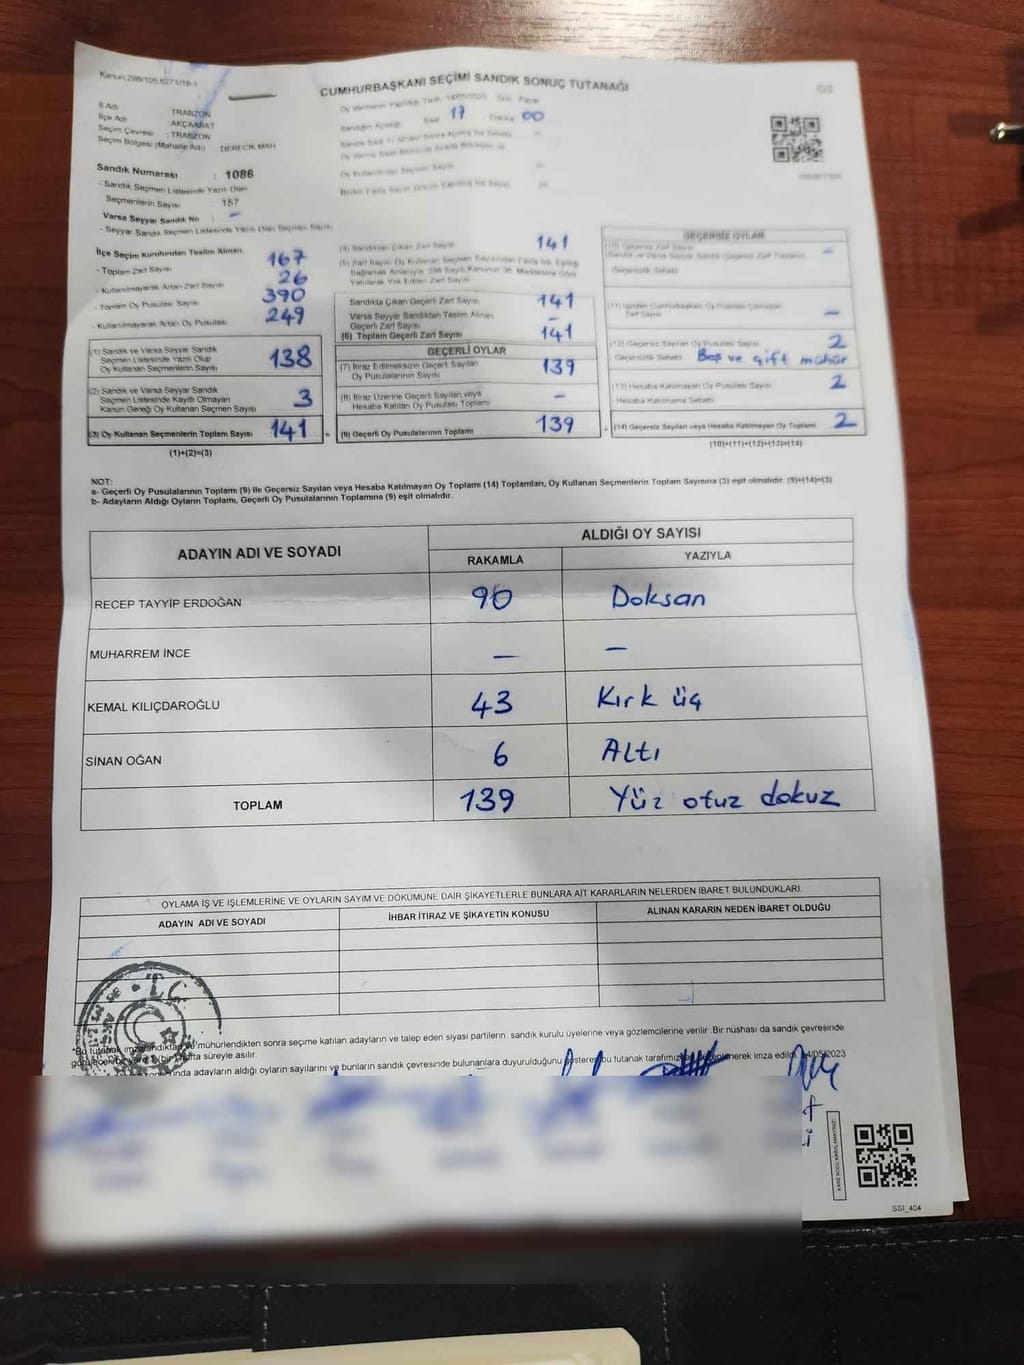 Kanun:298/105
CUMHURBAŞKANI SEÇİMİ SANDIK SONUÇ TUTANAĞI
İl Adı TRABZON
İlçe Adı AKÇAABAT
Seçim Çevresi : TRABZON
Seçim Bölgesi (Mahalle Adı) DERECİK MAH
Saat 17 Dakika 00
Sandık Numarası : 1086
- Sandık Seçmen Listesinde Yazılı Olan
Seçmenlerin Sayısı : 157
Varsa Seyyar Sandık No –
- Seyyar Sandık Seçmen Listesinde Yazılı Olan Seçmen Sayısı
İlçe Seçim Kurulundan Teslim Alınan
- Toplam Zarf Sayısı 167
- Kullanılmayarak Artan Zarf Sayısı 26
- Toplam Oy Pusulası 390
- Kullanılmayarak Artan Oy Pusulası 249
(1) Sandık ve Varsa Seyyar Sandık
Seçmen Listesinde Yazılı Olup
Oy Kullanan Seçmenlerin Sayısı 138
(2) Sandık ve Varsa Seyyar Sandık
Seçmen Listesinde Kayıtlı Olmayan
Kanun Gereği Oy Kullanan Seçmen Sayısı 3
(3) Oy Kullanan Seçmenlerin Toplam Sayısı 141
(1)+(2)=(3)
(4) Sandıktan Çıkan Zarf Sayısı 141
Sandıkta Çıkan Geçerli Zarf Sayısı 141
Varsa Seyyar Sandıktan Teslim Alınan
Geçerli Zarf Sayısı –
(6) Toplam Geçerli Zarf Sayısı 141
GEÇERLİ OYLAR
(7) İtiraz Edilmeksizin Geçerli Sayılan
Oy Pusulalarının Sayısı 139
(8) İtiraz Üzerine Geçerli Sayılan veya
Hesaba Katılan Oy Pusulası Toplamı –
(9) Geçerli Oy Pusulalarının Toplamı 139
GEÇERSİZ OYLAR
(10) Geçersiz Zarf Sayısı –
Geçersizlik Sebebi
Zarf Sayısı –
(12) Geçersiz Sayılan Oy Pusulası Sayısı 2
Geçersizlik Sebebi Boş ve çift mühür
(13) Hesaba Katılmayan Oy Pusulası Sayısı 2
Hesaba Katılmama Sebebi
(14) Geçersiz Sayılan veya Hesaba Katılmayan Oy Toplamı 2
(10)+(11)+(12)+(13)=(14)
NOT:
a- Geçerli Oy Pusulalarının Toplamı (9) ile Geçersiz Sayılan veya Hesaba Katılmayan Oy Toplamı (14) Toplamları, Oy Kullanan Seçmenlerin Toplam Sayısına (3) eşit olmalıdır. (9)+(14)=(3)
b- Adayların Aldığı Oyların Toplamı, Geçerli Oy Pusulalarının Toplamına (9) eşit olmalıdır.
ADAYIN ADI VE SOYADI
ALDIĞI OY SAYISI
RAKAMLA YAZIYLA
RECEP TAYYİP ERDOĞAN 90 Doksan
MUHARREM İNCE – –
KEMAL KILIÇDAROĞLU 43 Kırk üç
SİNAN OĞAN 6 Altı
TOPLAM 139 Yüz otuz dokuz
OYLAMA İŞ VE İŞLEMLERİNE VE OYLARIN SAYIM VE DÖKÜMÜNE DAİR ŞİKAYETLERLE BUNLARA AİT KARARLARIN NELERDEN İBARET BULUNDUKLARI
ADAYIN ADI VE SOYADI İHBAR İTİRAZ VE ŞİKAYETİN KONUSU ALINAN KARARIN NEDEN İBARET OLDUĞU
T.C.
*Bu tutanak imzalandıktan ve mühürlendikten sonra seçime katılan adayların ve talep eden siyasi partilerin sandık kurulu üyelerine veya gözlemcilerine verilir. Bir nüshası da sandık çevresinde
(bir) hafta süreyle asılır.
adayların aldığı oyların sayılarını ve bunların sandık çevresinde bulunanlara duyurulduğunu gösteren bu tutanak tarafımızdan imza edildi. 14/05/2023
KARE KODU KARALAMAYINIZ!
SSI_404